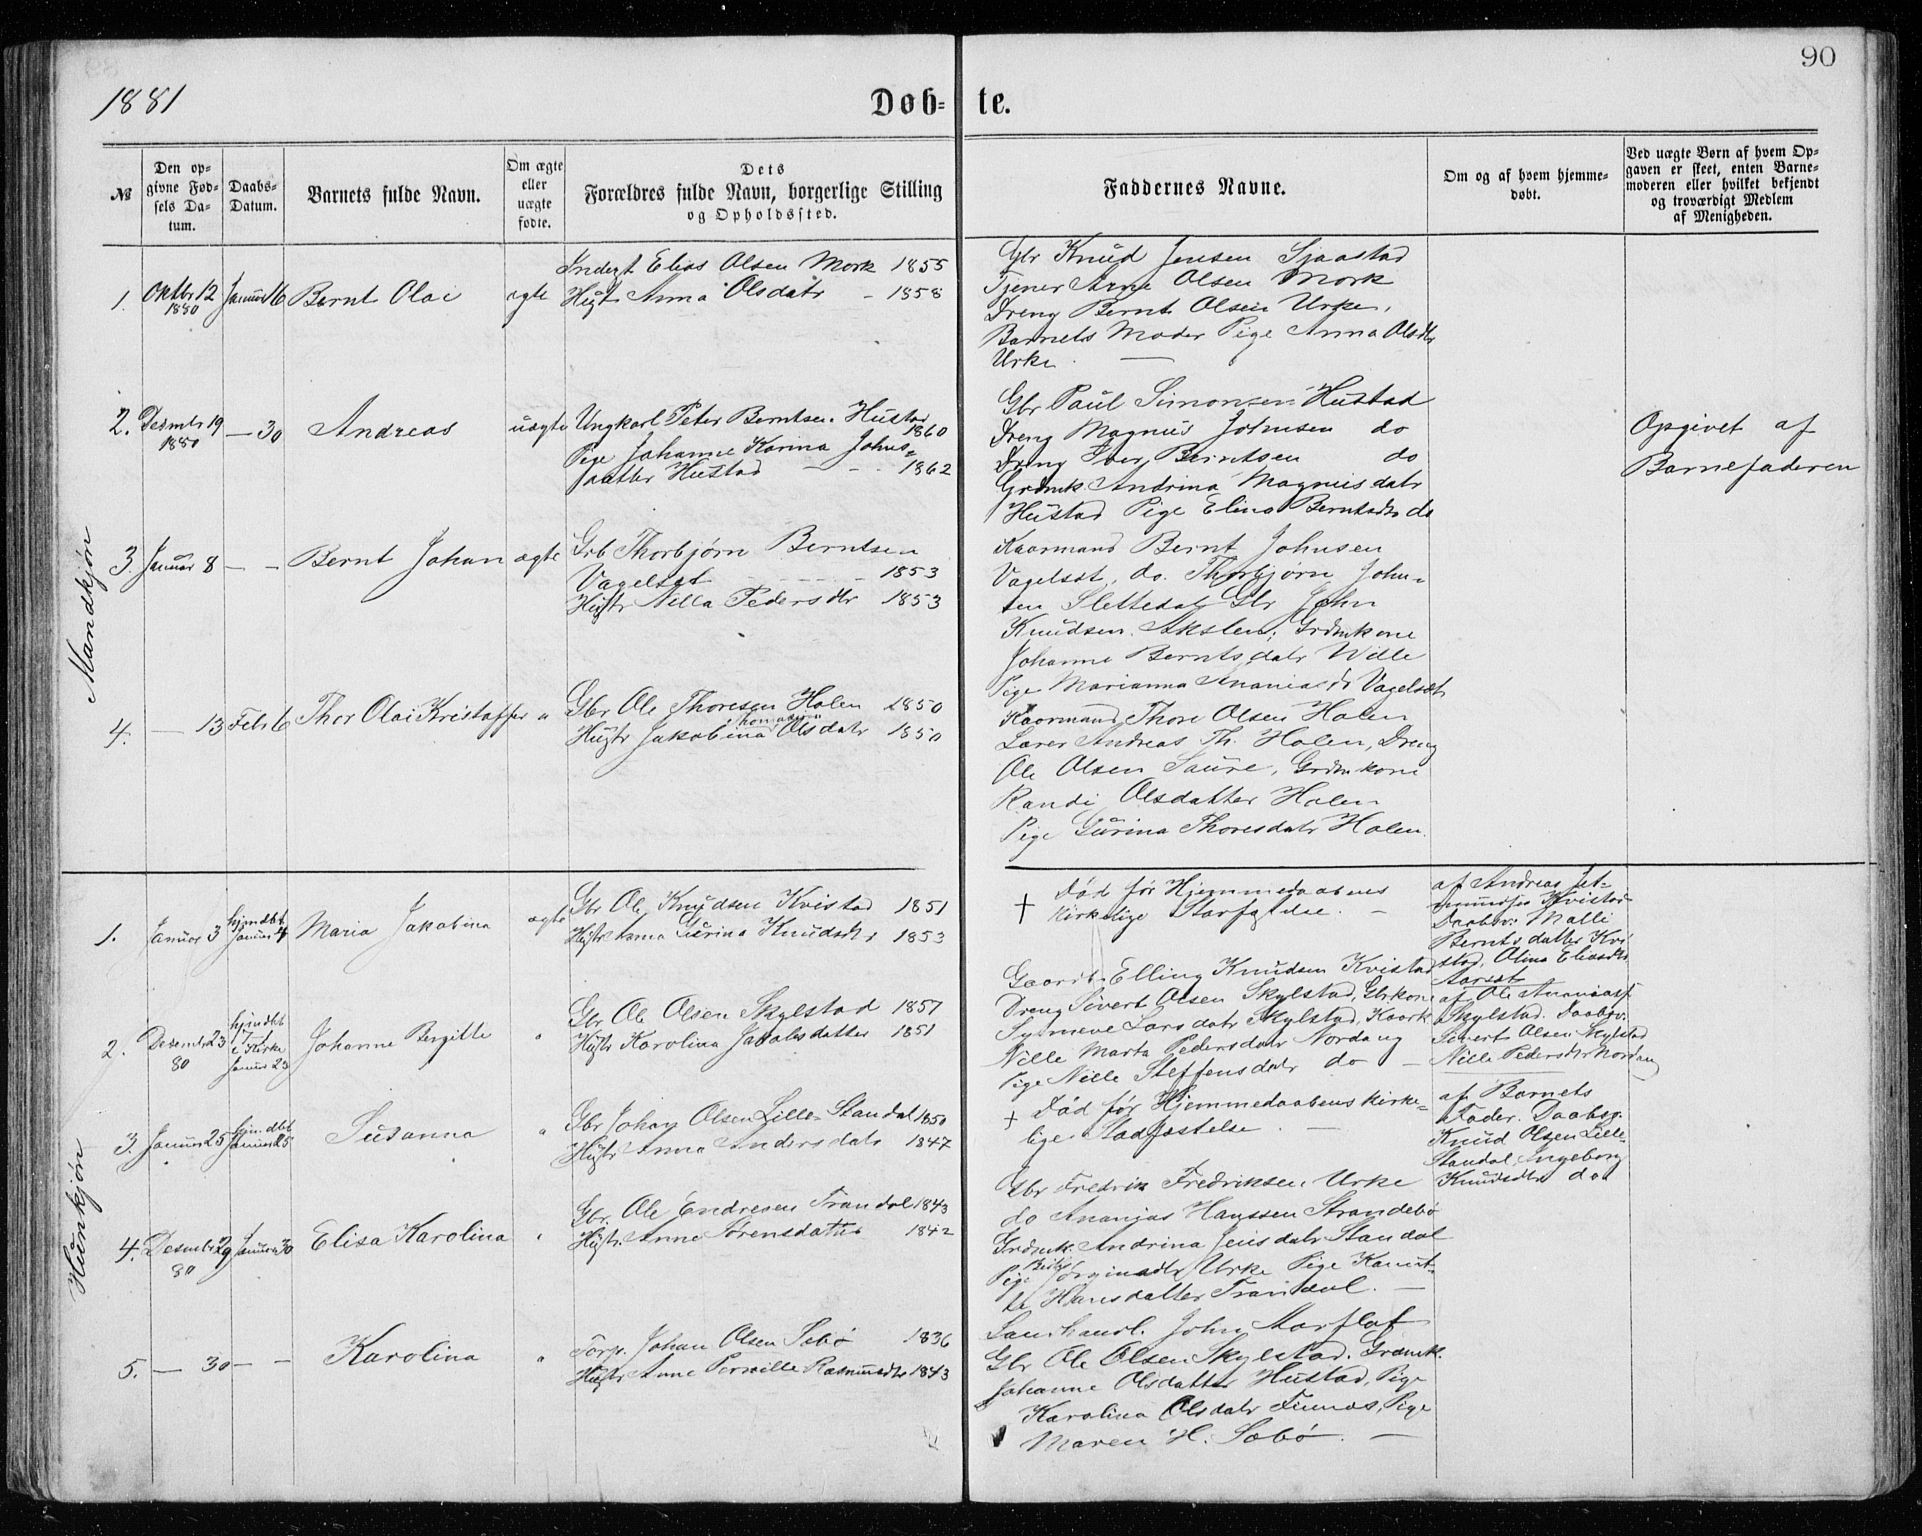 90
1881
Døb- te.
№
Den op-
givne Fød-
sels Da-
tum.
Daabs-
Datum.
Barnets fulde Navn.
Om ægte
eller
uægte
fødte.
Dets
Forældres fulde Navn, borgerlige Stilling
og Opholdssted.
Faddernes Navne.
Om og af hvem hjemme-
døbt.
Ved uægte Børn af hvem Op-
gaven er skeet, enten Barne-
moderen eller hvilket bekjendt
og troværdigt Medlem
af Menigheden.
Mandkjøn
1. Oktbr 12 Januar 16 Bernt Olai ægte
1880
Inderst Elias Olsen Mork 1855
Hustr Anna Olsdatr - 1858
Gbr Knud Jensen Sjaastad
Tjener Arne Olsen Mork
Dreng Bernt Olsen Urke,
Barnets Moder Pige Anna Olsdtr
Urke
2. Desembr 19 — 30 Andreas uægte
1880
Ungkarl Peter Berntsen Hustad
1860
Pige Johanne Karina Johns=
datter Hustad - - - 1862
Gbr Paul Simonsen Hustad
Dreng Magnus Johnsen do
Dreng Iver Berntsen do
Grdmk. Andrina Magnusdatr
Hustad Pige Elina Berntsdtr do
Opgivet af
Barnefaderen
3. Januar 8 — — Bernt Johan ægte
Grb Thorbjørn Berntsen
Vagelsæt - - - - 1853
Hustr Nilla Pedersdtr 1853
Kaarmand Bernt Johnsen
Vagelsæt, do. Thorbjørn John-
sen Slettedal Gbr John
Knudsen Akslen, Grdmkone
Johanne Berntsdatr Wille
Pige Marianna Ananiasdr Vagelsæt
4. — 13 Febr 6 Thor Olai Kristaffer "
Gbr Ole Thoresen Holen 1850
Thomasin
Hustr Jakobina Olsdatr 1850
Kaarmand Thore Olsen Holen
Lærer Andreas Th. Holen, Dreng
Ole Olsen Saure, Grdmkone
Randi Olsdatter Holen
Pige Gurina Thoresdatr Holen.
Hunkjøn
1. Januar 3 hjmdbt Januar 4 Maria Jakobina ægte
Gbr Ole Knudsen Kvistad 1851
Hustr Anna Gurina Knudsdtr 1853
† Død før Hjemmedaabens
kirkelige —
af Andreas
Kvistad
Daabsv. Malli
Berntsdatter Kvi
stad, Olina Eliasdtr
Aarset
2. Desembr 23 hjmdbt
80 i Kirke
Januar 23
Johanne Bergitte "
Gbr Ole Olsen Skylstad 1851
Hustr Karolina Jakobsdatter 1851
Gaardb. Elling Knudsen Kvistad
Dreng Sivert Olsen Skylstad, Gbrkone
Synneve Larsdatr Skylstad, Kaark
Nille Marta Pedersdatr Nordang
Pige Nille Steffensdatr do —
af Ole Ananiass
Skylstad. Daabsv.
Sivert Olsen Skylstad
Nille Pedersdtr Nordang
3. Januar 25 hjmdbt Januar 25 Susanna "
Gbr Johan Olsen Lille-Standal 1850
Hustr Anna Andersdatr 1847
† Død før Hjemmedaabens kirke=
lige Stadfæstelse. —
af Barnets
Fader. Daabsv.
Knud Olsen Lille-
Standal, Ingeborg
Knudsdtr do
4. Desembr 29 Januar 30 Elisa Karolina "
80
Gbr. Ole Endresen Trandal 1843
Hustr. Anne Sørensdatter 1842
Gbr Fredrik Fredriksen Urke
do Ananias Hanssen Strandebø
Grdmk. Andrina Jensdatr Standal
Pige Jørginadtr Urke Pige Kanut-
te Hansdatter Trandal. —
5. — 30 — — Karolina "
Torp. Johan Olsen Sebø 1836
Hustr Anne Pernille Rasmusdtr 1843
Lanhandl. John Aarflot
Gbr Ole Olsen Skylstad. Grdmk.
Johanne Olsdatter Hustad, Pige
Karolina Olsdatr Finnes, Pige
Maren H. Sæbø. —